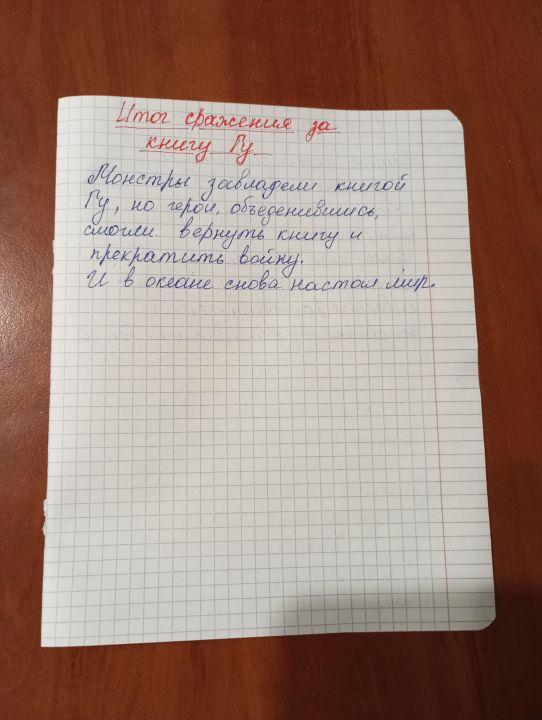 Итог сражения за
книгу Гу
Монстры завладели книгой
Гу, но герои, объеденившись,
смогли вернуть книгу и
прекратить войну.
И в океане снова настал мир.